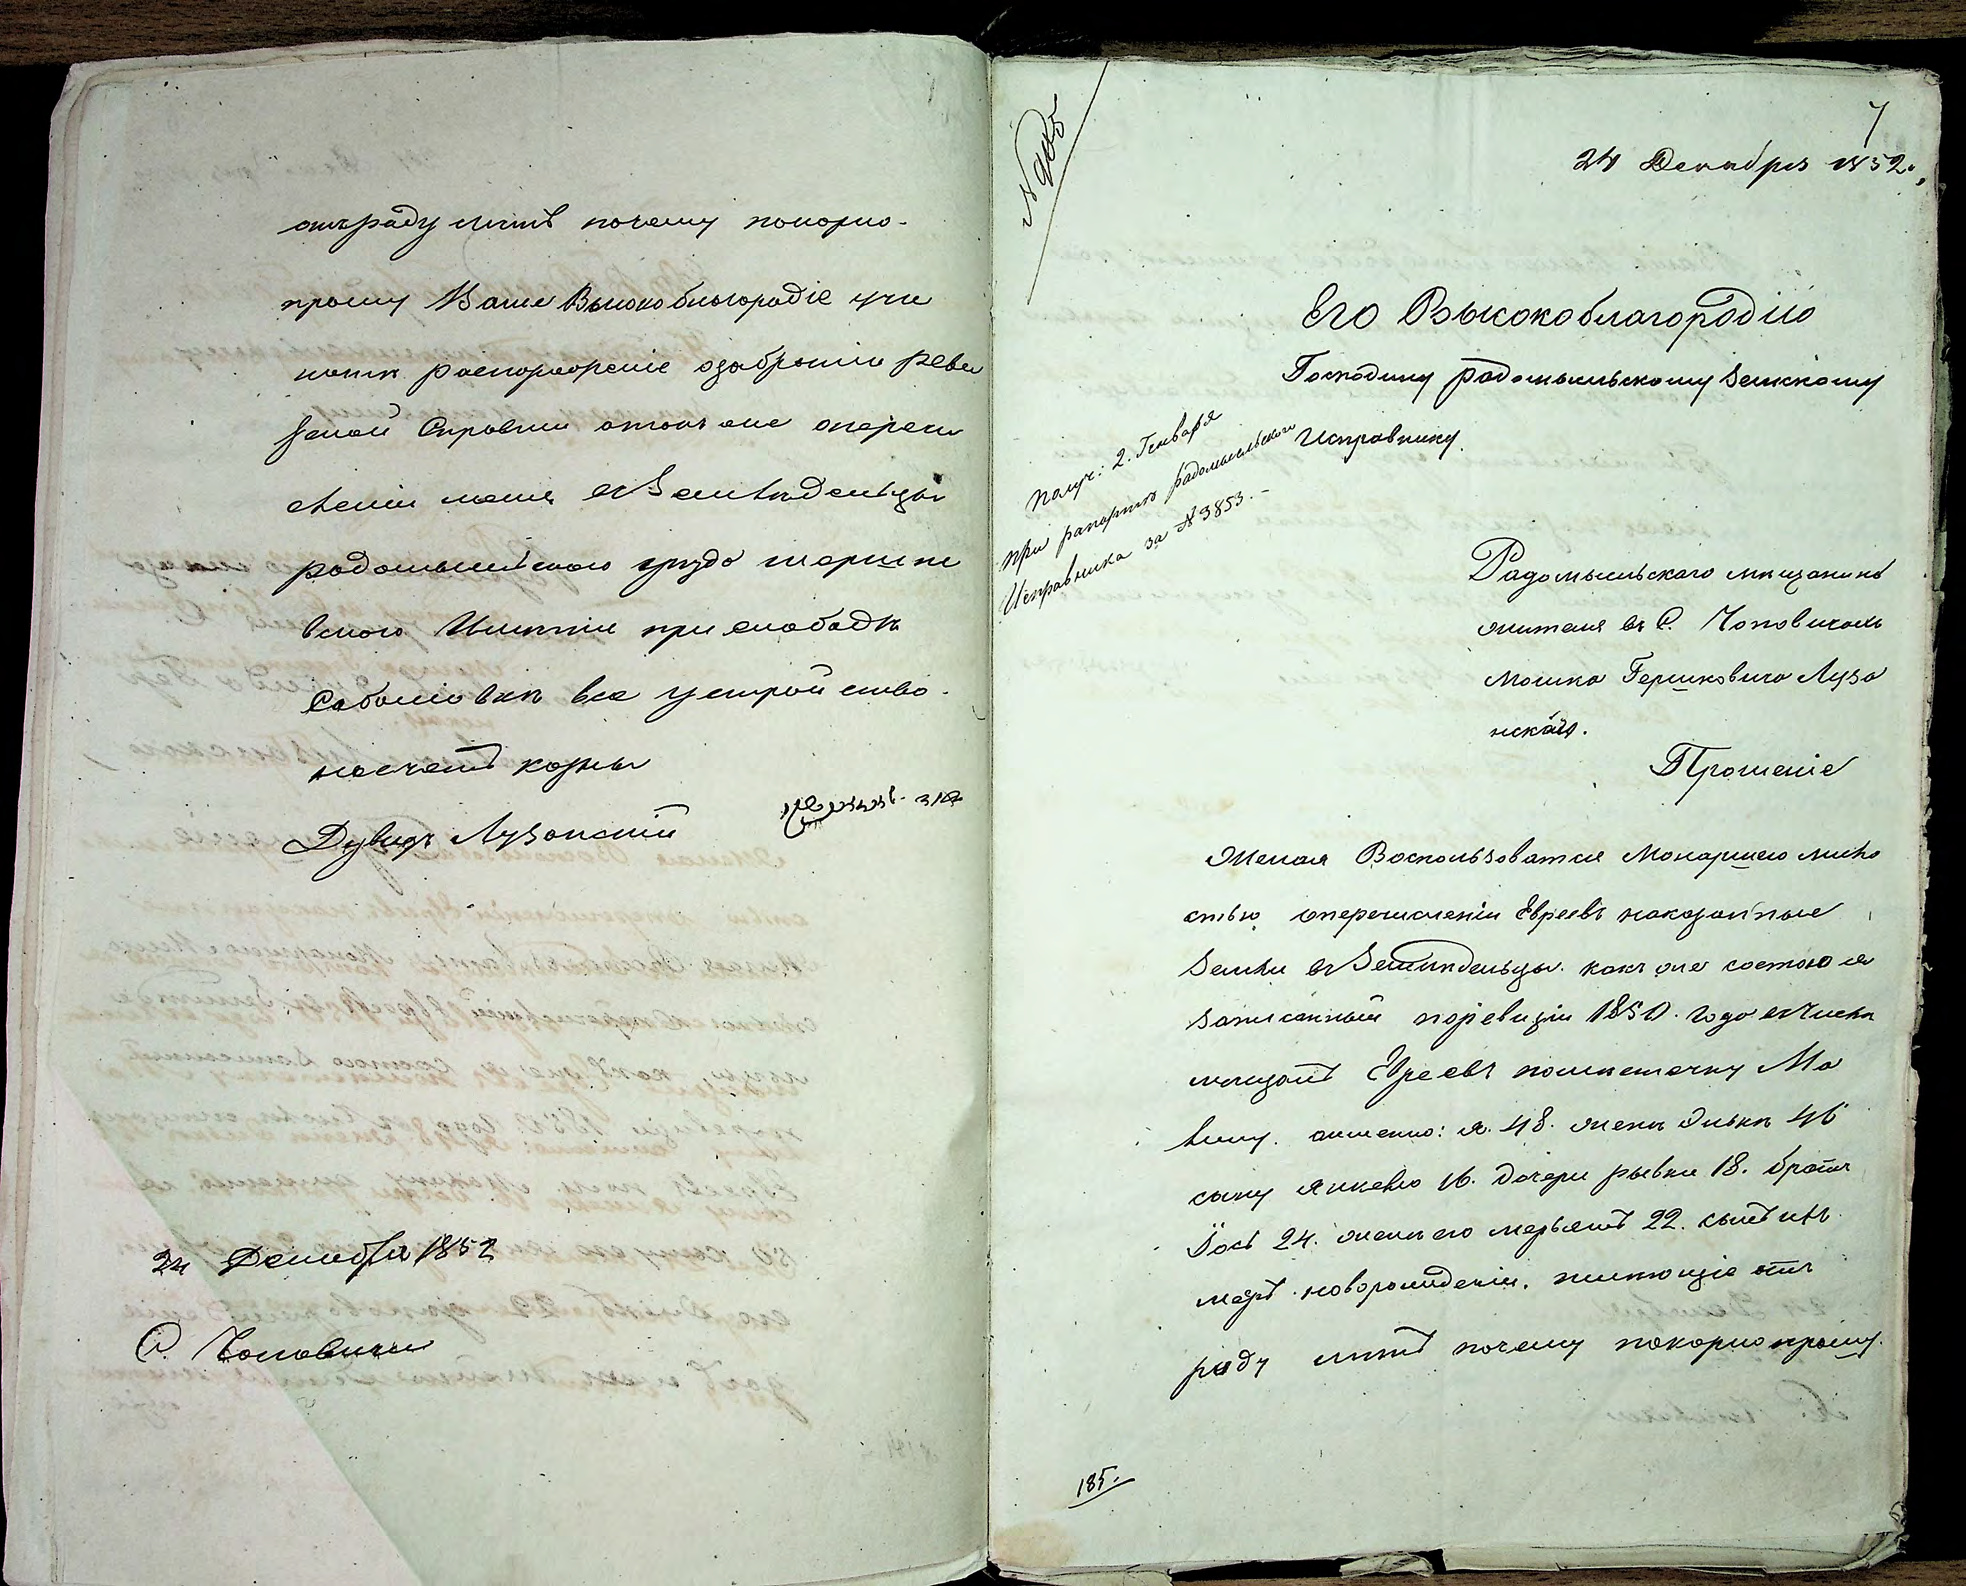 отъраду летъ почему покорно
прошу Ваше Высокоблагородіе учи
нить распоряженіе озабраніи реви
зской Справки атакъ оне опереч
сленіи меня въ Земледельцы
радомысльскаго уезда
вского Именія при слабодкъ
все устройство
насчетъ казны
Дувидъ Лузанскій
24 Декабря 1852
С. Чоповичи
7
24 Декабря 1852.
Его Высокоблагородію
Господину радомысльскому Земскому
Исправнику.
Получ: 2. Генваря
при рапортъ радомысльскаго
Исправника за №3853.-
Радомысльскаго мещанина
жителя въ С. Чоповичахъ
Мошка Гершковича Луза
нскаго.
Прошеніе
Желая Воспользоватся Монаршею мило
стью оперечисленіи Евреевъ наказенные
Земли въ Земледельцы. какъ оне состою я
записанный поревизіи 1850. года въ Числе
мещанъ Евреевъ поместечку Ма
лину. аименно: я. 48. жена 46
сыну Янкелю 16. дочери рывки 18. братъ
Іось 24. жена его 22. сынъ ихъ
новорожденіи.
раду летъ почему покорно прошу.
185.